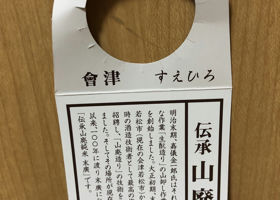 會津
すえひろ
伝承山廃
明治末期、嘉儀金一郎氏はそれ
な作業「生酛造り」の山卸し作
を創始しました。大正初期、末
若松市（現在の会津若松市）か
時の酒造技術者として最高の
招聘し、「山廃造り」の技術を
ました。そしてその場所が現在
以来、一〇〇年に渡り末廣に
「伝承山廃純米 末廣」です。